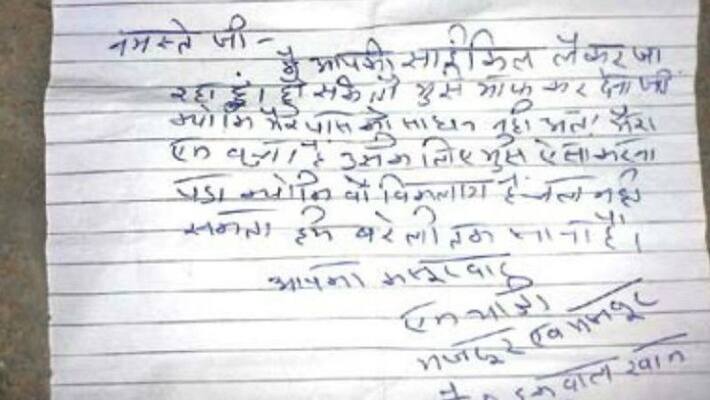 नमस्ते जी -
मैं आपकी साईकिल लेकर जा
रहा हूं। हो सके तो मुझे माफ कर देना जी
क्योंकि मेरे पास कोई साधन नही है मेरा
एक बच्चा है उसके लिए मुझे ऐसा करना
पड़ा क्योंकि वो विकलांग है चल नही
सकता हमें बरेली तक जाना है।
आपका कसूरवार
एक यात्री
मजदूर एवं मजबूर
इकबाल खान